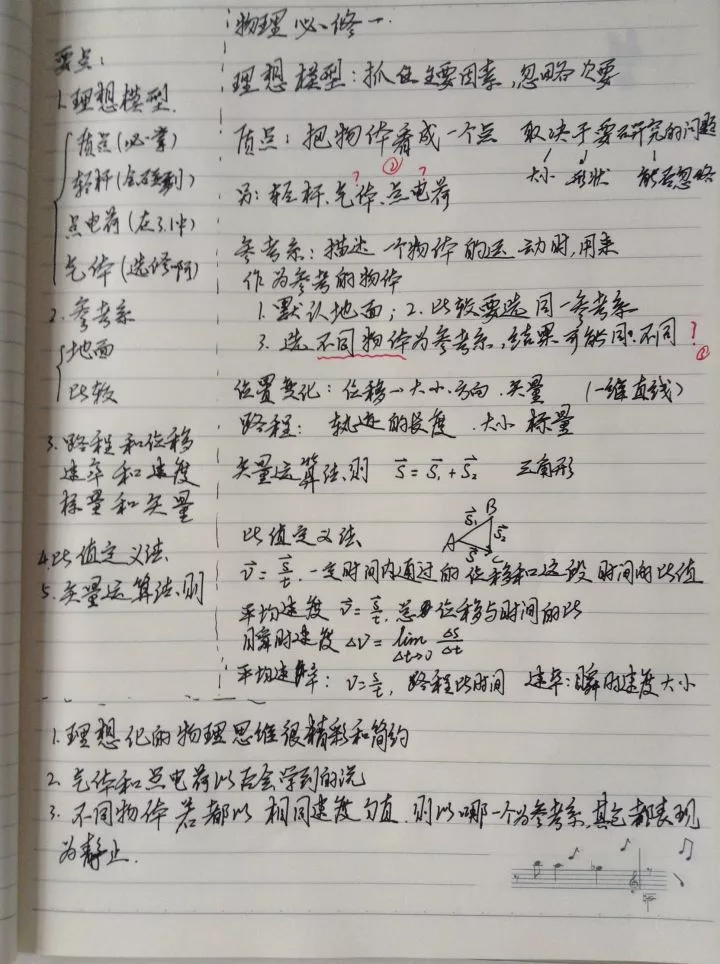 物理必修一.
要点:
1.理想模型.
质点(必掌)
轻杆(会碰到)
点电荷(在3.1中)
气体(选修啊)
2.参考系
地面
比较
3.路程和位移
速率和速度
标量和矢量
4.比值定义法
5.矢量运算法则
理想模型:抓住主要因素,忽略次要
质点:把物体看成一个点 取决于要研究的问题
大小 形状 能否忽略
② ? ?
另:轻杆、气体、点电荷
参考系:描述一个物体的运动时,用来
作为参考的物体
1.默认地面;2.比较要选同一参考系
3.选不同物体为参考系,结果可能同.不同?③
位置变化:位移→大小.方向.矢量 (一维直线)
路程:轨迹的长度.大小 标量
矢量运算法则 s=s₁+s₂ 三角形
B
s₁
A s₂
s C
比值定义法
v=s/t.一定时间内通过的位移和这段时间的比值
平均速度 v=s/t,总位移与时间的比
瞬时速度 Δv=lim Δs/Δt
Δt→0
平均速率:v=s/t,路程比时间 速率:瞬时速度大小
1.理想化的物理思维很精彩和简约
2.气体和点电荷以后会学到的说
3.不同物体若都以相同速度匀直.则以哪一个为参考系,其它都表现
为静止.